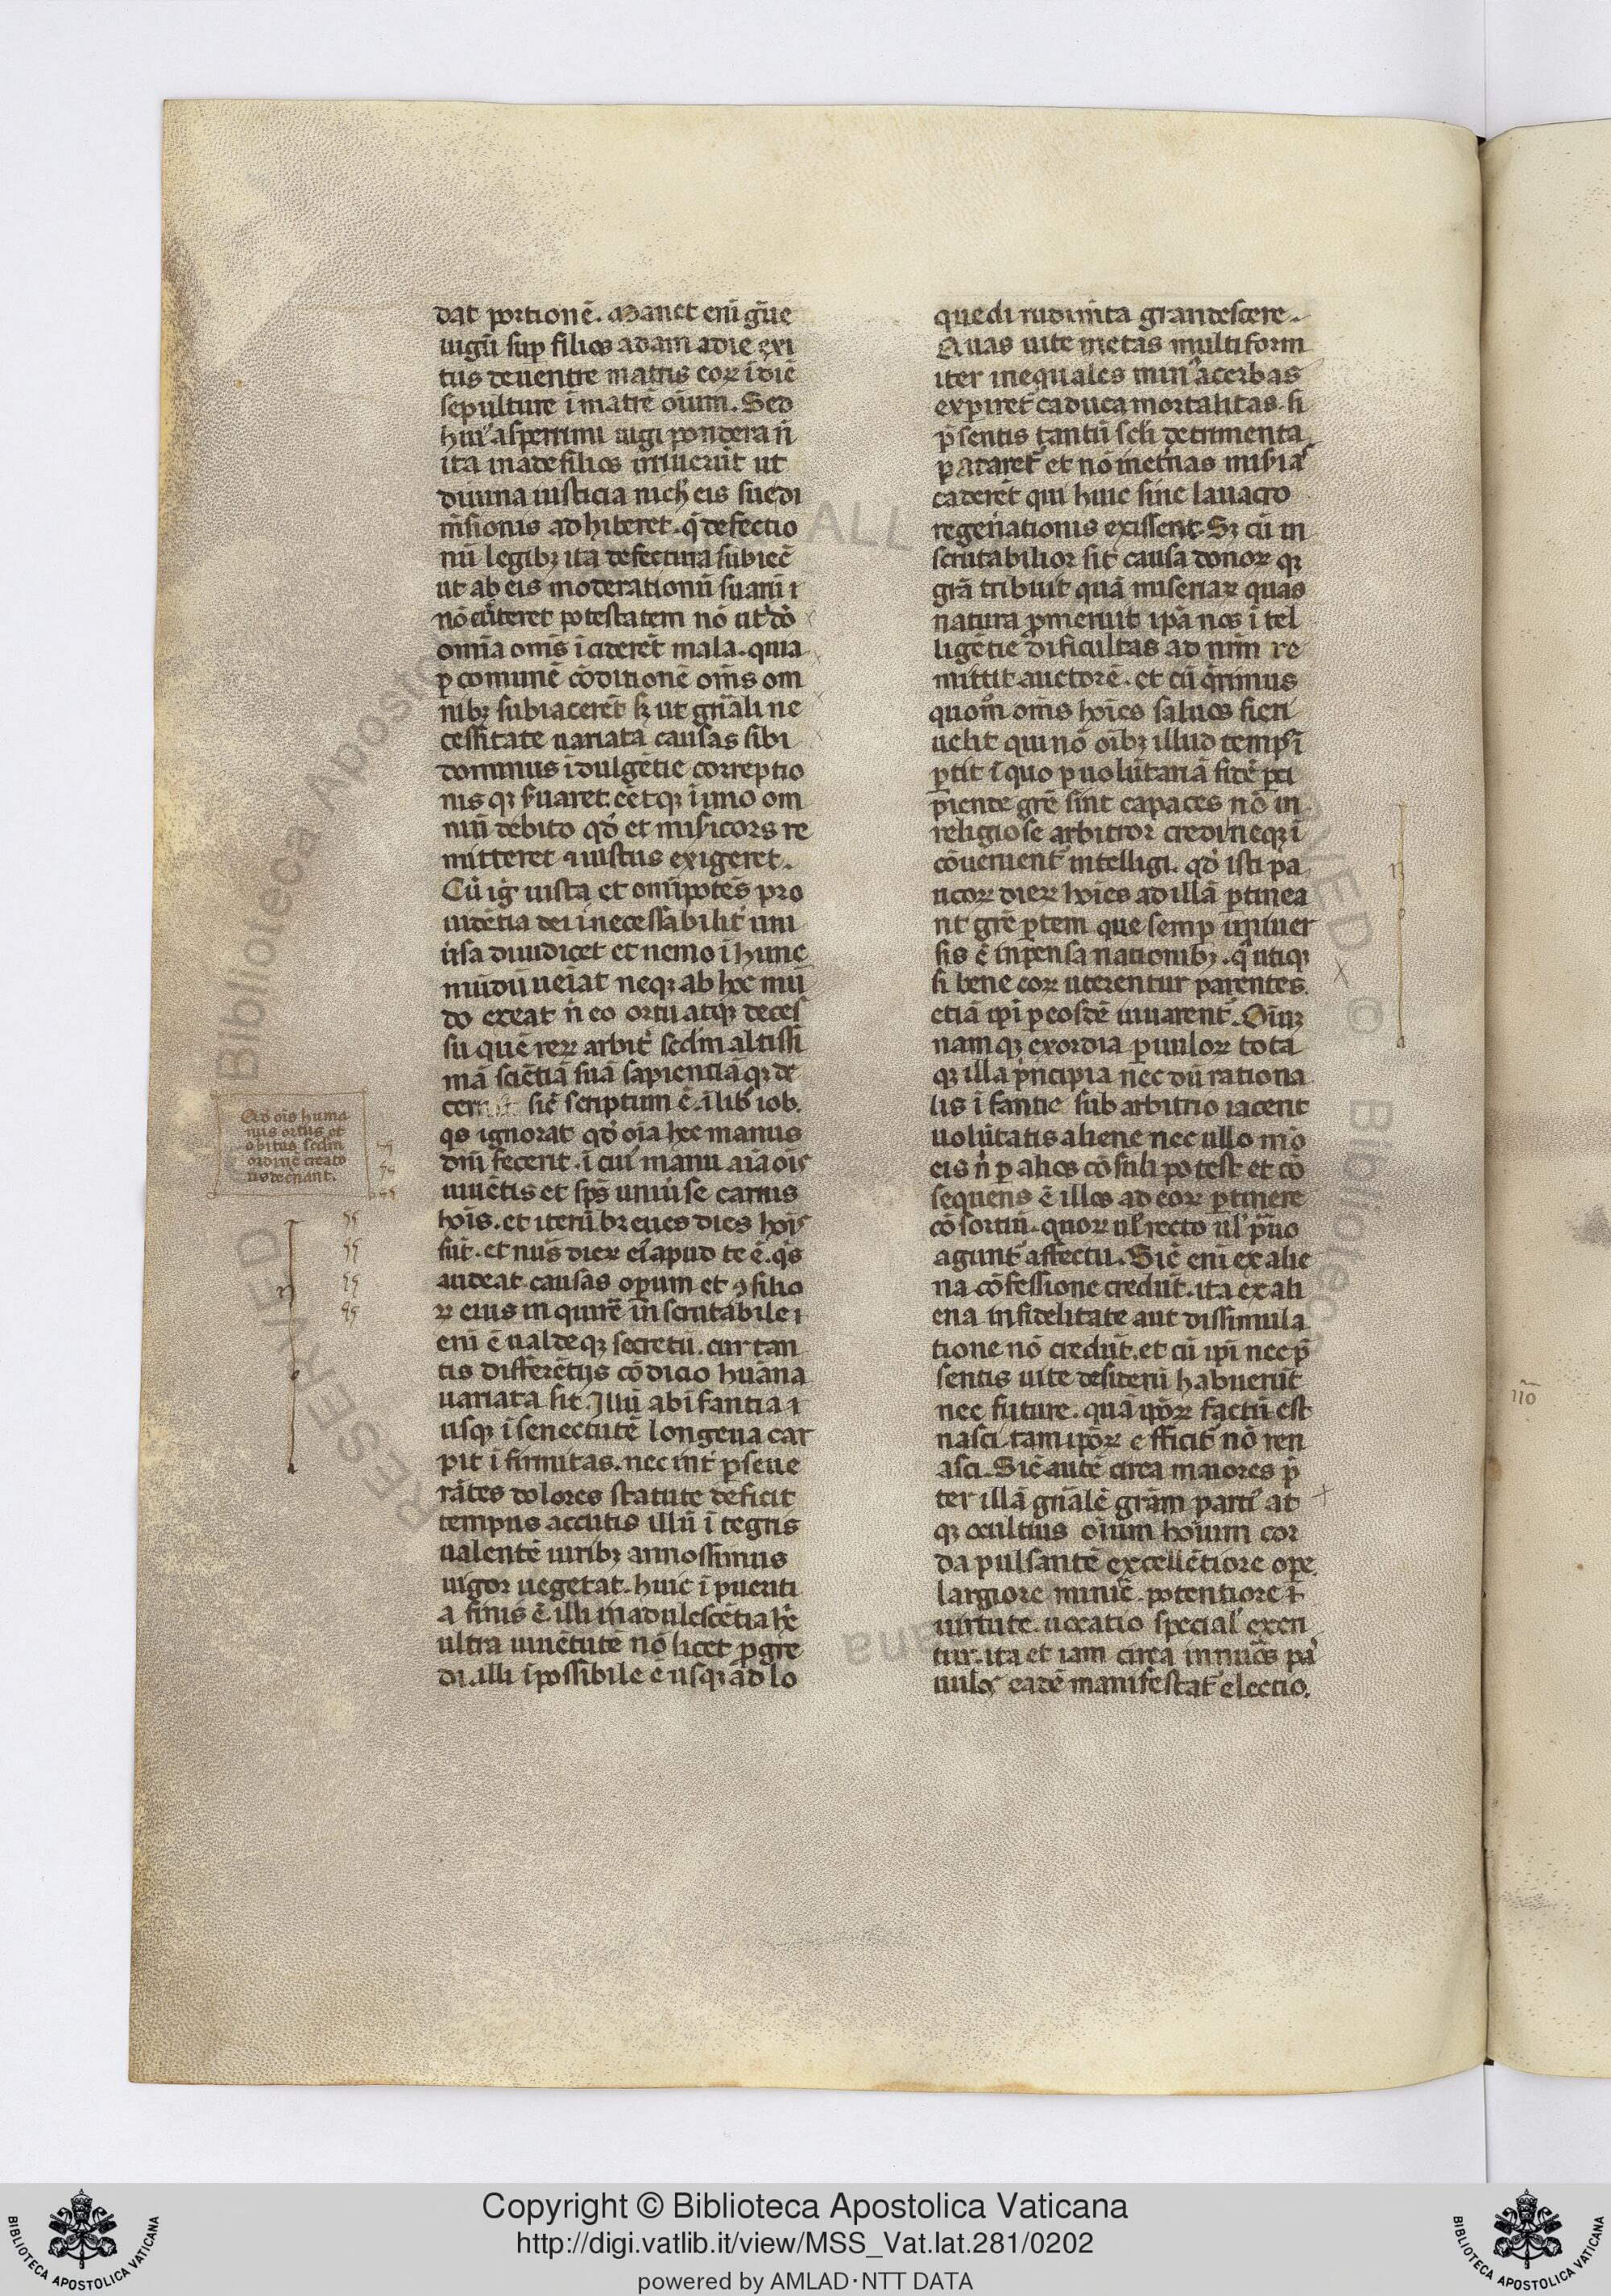 dat portionē. Manet eni gͣue
iugū sup filios adam a die exi
tus de uentre matris eoꝝ ī diē
sepulture ī matrē oīum. Sed
huiꝰ asperrimi iugi pondera ñ
ita in ade filios irruerūt ut
diuina iusticia nich̄ eis sue di
m̄sionis adhiberet. q̄ defectio
nū legibꝫ ita defectura subiec̄
ut ab eis moderationū suarū
nō auferet potestatem nō ut
omīa om̄s īciderēt mala. quia
ꝑ comunē cōditionē om̄s om
nibꝫ subiacerēt sꝫ ut gn̄ali ne
cessitate uariata causas sibi
dominus īdulgētie correptio
nis qꝫ suaret. eētqꝫ ī uno om
niū debito qd̓ et misicors re
mitteret ⁊ iustus exigeret.
Cū ig̓ iusta et om̄ipotēs pro
uidētia dei īnecessabilit̓ uni
ūsa diiudicet et nemo ī hunc
mūdū ueīat neqꝫ ab hoc mū
do exeat ñ eo ortu atqꝫ deces
su quē reꝝ arbit̓ secdm altissi
mā sciētiā suā sapienciāqꝫ de
sic̄ scriptum ē. ī lib̓ iob.
q̄s ignorat qd̓ oīa hec manus
dn̄i fecerit. ī cuiꝰ manu aīa oīs
uiuētis et sp̄s uniūse carnis
hoīs. et iterū breues dies hoīs
sūt. et nūs dieꝝ eiꝰ apud te ē. q̄s
audeat causas oꝑum et ꝯsilio
ꝝ eius inquirē inscrutabile
eni ē ualdeqꝫ secretū. cur tan
tis differētijs cōdicio huāna
uariata sit. Illū ab ī fantia
usqꝫ ī senectutē longeua car
pit ī firmitas. nec int̓ ꝑseue
rātes dolores statute deficit
tempus accutis illū ītegris
ualentē uiribꝫ annossimus
uigor uegetat. huic ī pueriti
a finis ē. illi in adulescētia hic̄
ultra iuuētutē nō licet ꝓgre
di. illi īpossibile ē usqꝫ ad lo
Ad oīs huma
nus ortus et
obitus secdm
ordinē creato
quedi rudim̄ta grandescere.
Quas uite metas multiform
iter inequales min̓ acerbas
expiret̓ caduca mortalitas. si
p̄sentis tantū scl̓i detrimenta
pataret̓ et nō et̓nas misias
caderēt qui huic sine lauacro
regen̄ationis exissent. Sꝫ cū in
scrutabilior sit causa donoꝝ qꝫ
grā tribuit quā miseriaꝝ quas
natura ꝓmeruit ip̄a nos ī tel
ligētie dificultas ad nr̄m re
mittit auctorē. et cū q̄rimus
quom̄ om̄s hoīes saluos fieri
uelit qui nō oībꝫ illud tempꝰ ī
ꝑtit ī quo ꝑ uolūtariā fidē ꝑci
piende grē sint capaces nō in
religiose arbitror credi neqꝫ ī
cōuenient̓ intelligi. qd̓ isti pa
ucoꝝ dieꝝ hoīes ad illā ꝑtinea
nt grē ꝑtem que semꝑ uniuer
sis ē inpensa nationibꝫ. q̄ utiqꝫ
si bene eoꝝ uterentur parentes.
etiā ip̄i ꝑ eosdē iuuarent̓. Oīuꝫ
namqꝫ exordia ꝑuuloꝝ tota
qꝫ illa p̄ncipia nec dū rationa
lis ī fantie sub arbitrio iacent
uolūtatis aliene nec ullo mō
eis ñ ꝑ alios cōsuli potest et cō
sequens ē illos ad eoꝝ ꝑtinere
cōsortiū. quoꝝ ul̓ recto ul̓ p̄uo
agunt̓ affectu. Sic̄ eni ex alie
na cōfessione credūt. ita ex ali
ena infidelitate aut dissimula
tione nō credūt. et cū ip̄i nec p̄
sentis uite desideriū habuerūt
nec future. quā ip̄oꝝ factū est
nasci. tam ip̄oꝝ efficit̓ nō ren
asci. Sic̄ autē circa maiores p̄
ter illā gn̄alē grām parciꝰ at
qꝫ ocultius oīum hoīum cor
da pulsantē excellētiore oꝑe.
largiore mun̄e. potentiore
uirtute. uocatio special̓ exeri
tur. ita et iam circa innūos pa
uulos eadē manifestat̓ electio.
110
Copyright © Biblioteca Apostolica Vaticana
http://digi.vatlib.it/view/MSS_Vat.lat.281/0202
powered by AMLAD·NTT DATA
BIBLIOTECA APOSTOLICA VATICANA
BIBLIOTECA APOSTOLICA VATICANA